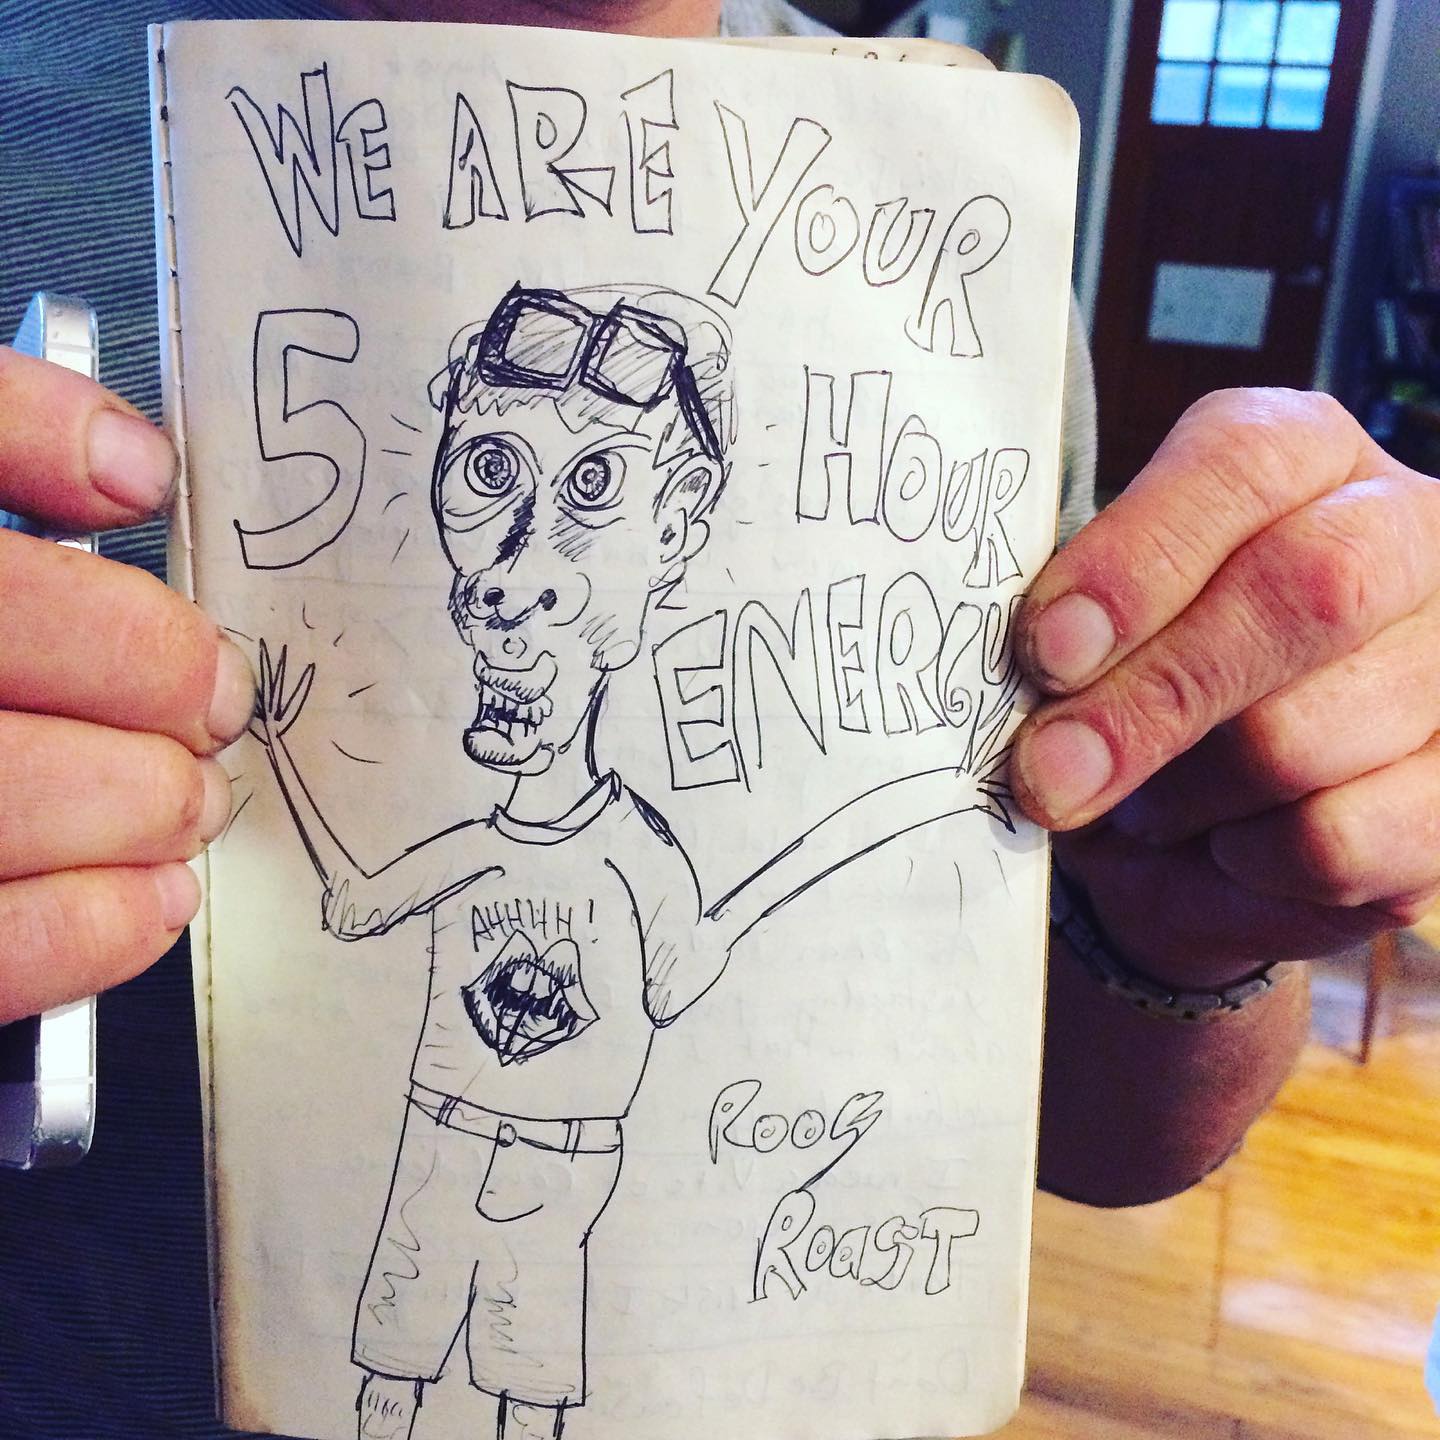 WE ARE YOUR
5 HOUR
ENERGY
AHHHH!
ROOS
ROAST